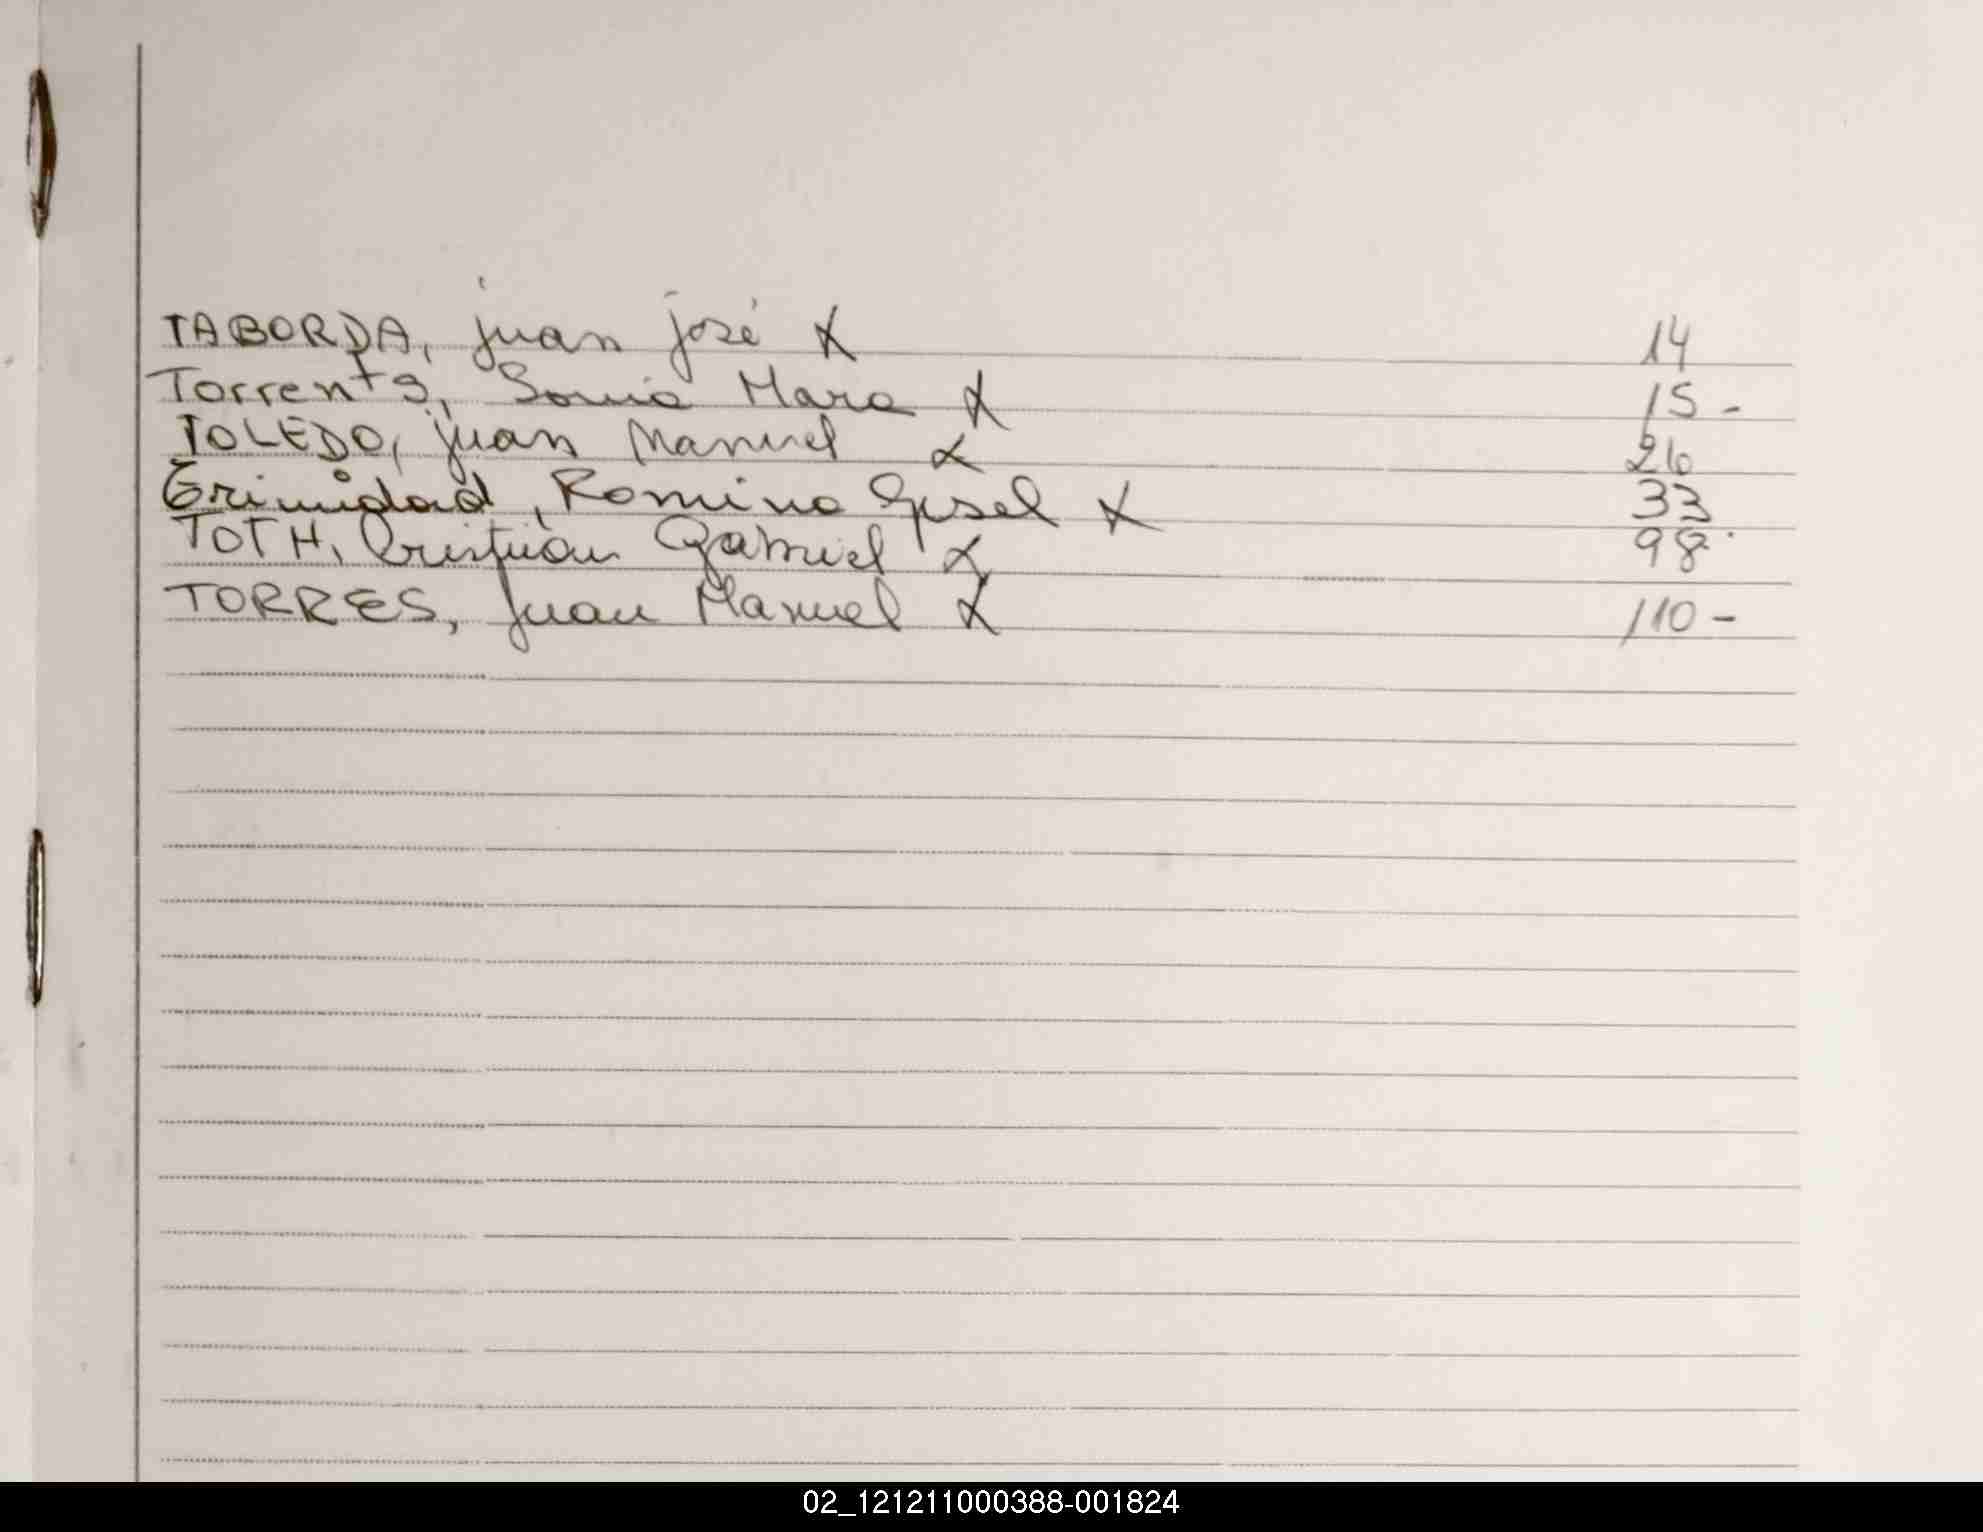 TABORDA, Juan José X 14
Torrents, Sonia Mara X 15 -
TOLEDO, Juan Manuel X 26
Trinidad, Romina Gisel X 33
TOTH, Cristian Gabriel X 98
TORRES, Juan Manuel X 110 -
02_121211000388-001824